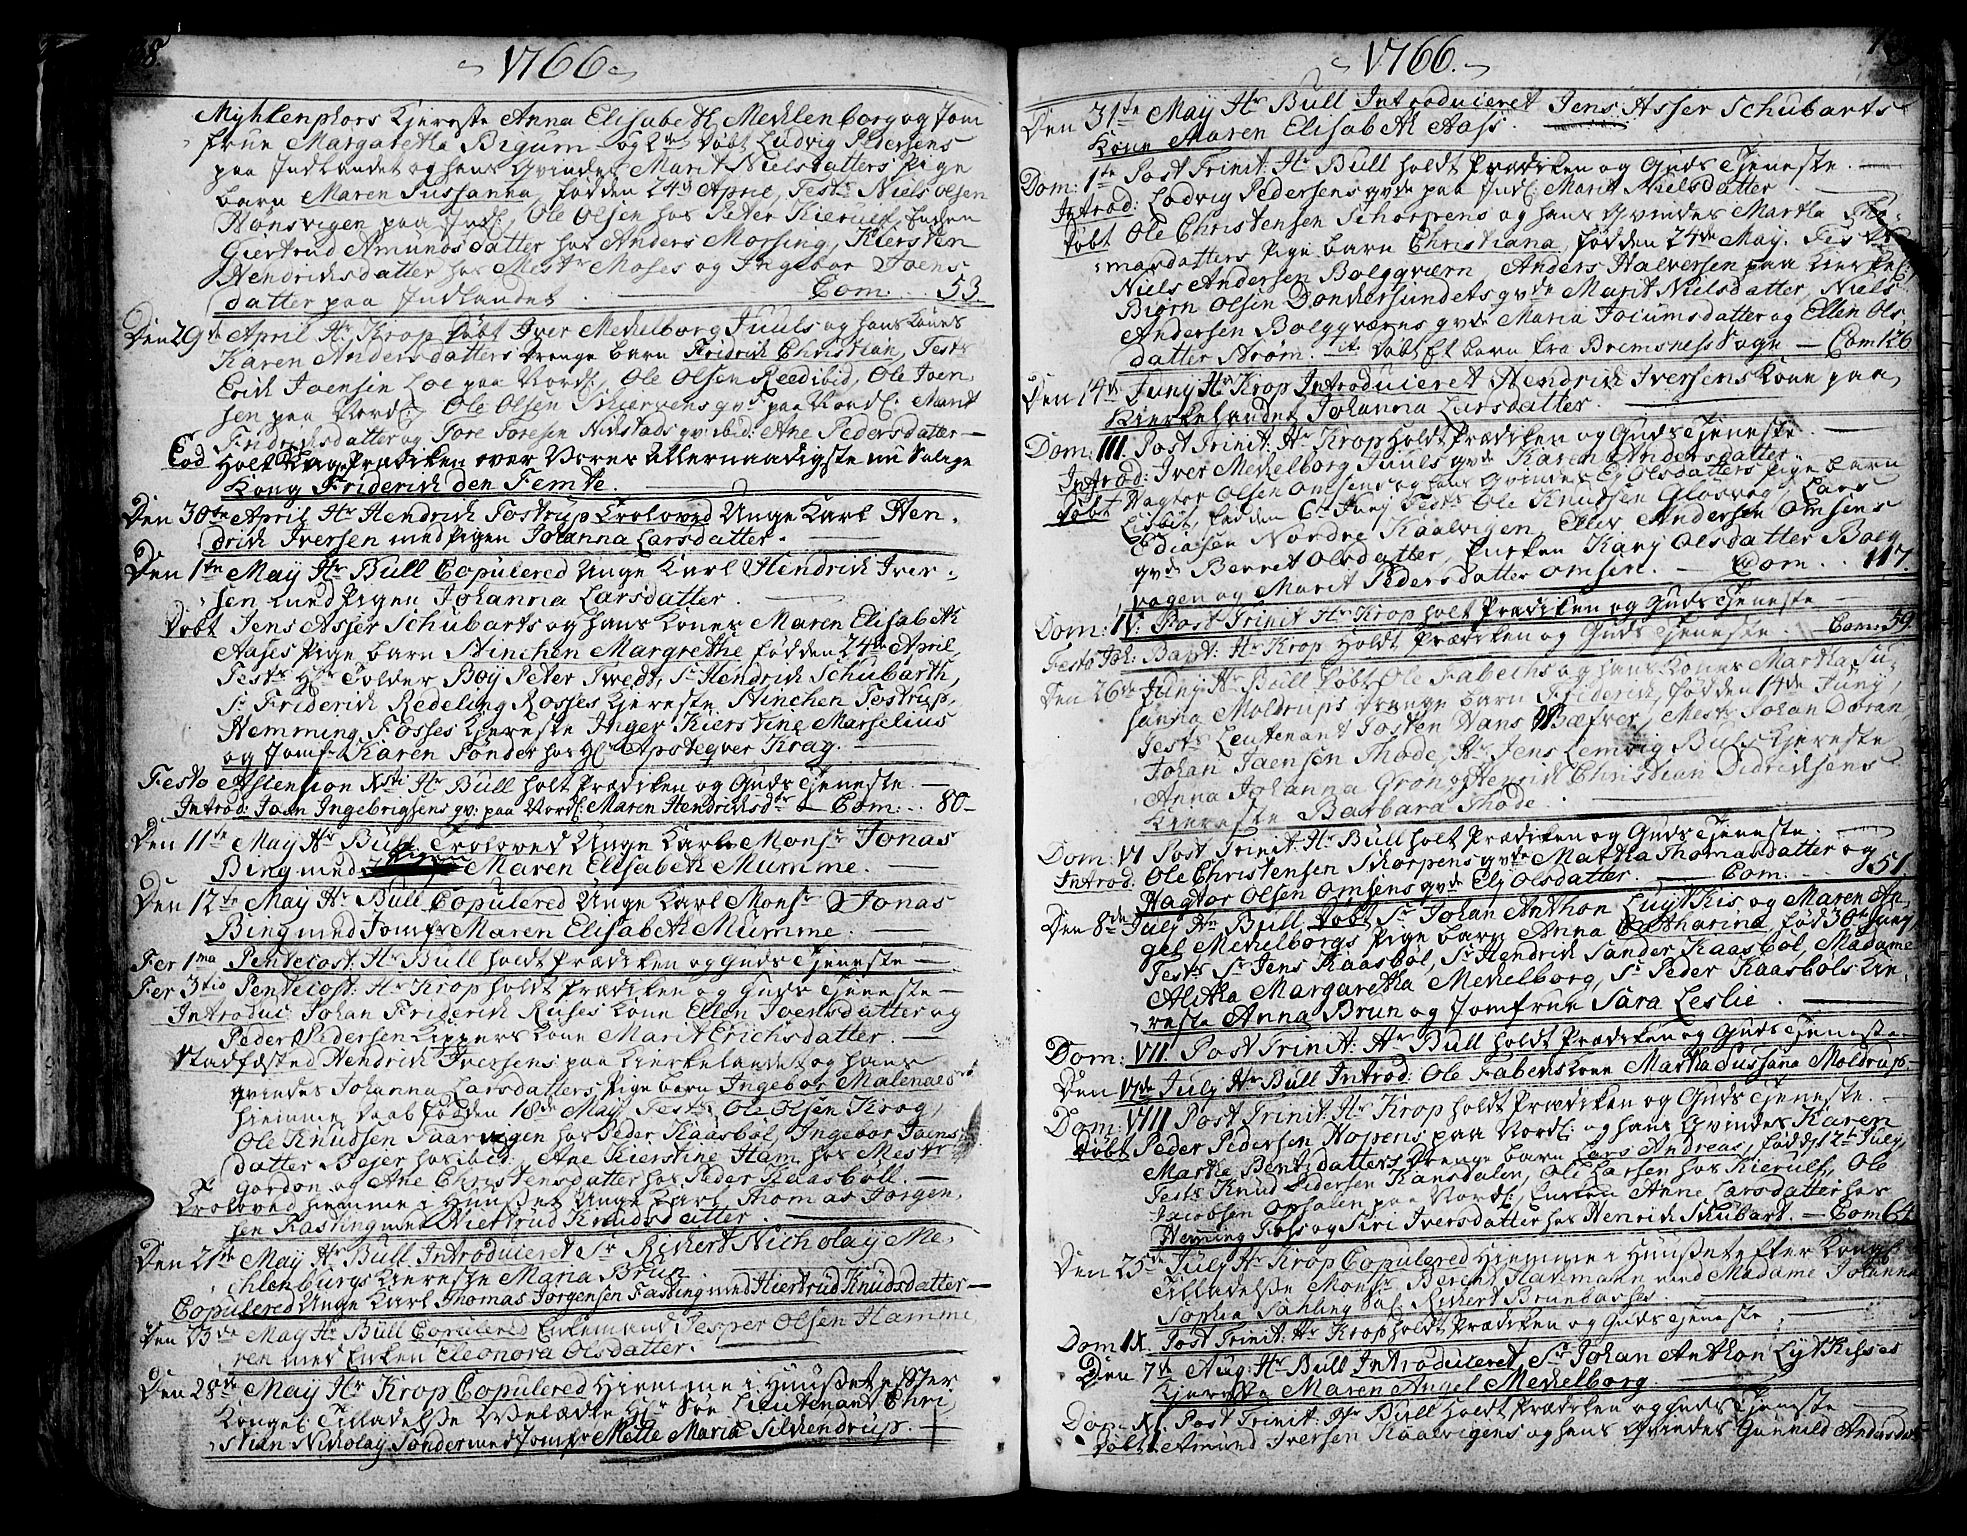 1766
Myhlenphors Kiereste Anna Elisabeth Mechlenborg og Jom
frue Margaretha Bigum og 2de Døbt Ludvig Pedersens
paa Indlandet og hans Qvindes Marit Nielsdatters Pige
barn Maren Sussanna, fød den 24de April, Test: Niels Olsen
Hønsvigen paa Indl: Ole Olsen hos Peter Kierulf, Enken
Giertrud Amundsdatter hos Anders Morsing, Kiersten
Hendrichsdatter hos Mestr Moses og Ingebor Joens
datter paa Indlandet. Com: 53
Den 29de April Hr Krop Døbt Iver Mechelborg Juuls og hans Kones
Karen Andersdatters Drenge barn Fridrich Christian, Test:
Erich Joensen Loe paa Nordl: Ole Olsen Reedibid, Ole Joen-
sen paa Nordl: Ole Olsen Skarvens qvd paa Nordl: Marit
Fridrichsdatter og Tore Toresen Nedstads qv: ibid: Ane Pedersdatter
Eod Holt Prædiken over Vores Allernaadigste nu Salige
Kong Friderich den Femte.
Den 30te April Hr Hendrich Tostrup Troloved Unge Karl Hen-
drich Iversen med Pigen Johanna Larsdatter.
Den 1te May Hr Bull Copulered Unge Karl Hendrich Iver-
sen med Pigen Johanna Larsdatter.
Døbt Jens Asser Schubarts og hans Kones Maren Elisabeth
Aases Pige barn Stinchen Margrethe fød den 24de April,
Test: Hr Tolder Boy Peter Twedt, Sr Hendrich Schubarth,
Sr Friderich Redeling Rosses Kiereste Stinchen Tostrup,
Hemming Fosses Kiereste Inger Kierstine Marselius
og Jomfr Karen Tønder hos Hr Apoteqver Krag.
Festo Ascension Xsti Hr Bull holt Prædiken og Guds Tjeneste.
Introd: Joen Ingebrigsens qv: paa Nordl: Maren Hendrichsdtr Com: 80
Den 11te May Hr Bull Troloved Unge Karl Monsr Jonas
Bing med Pigen Maren Elisabeth Mumme.
Den 12te May Hr Bull Copulered Unge Karl Monsr Jonas
Bing med Jomfr Maren Elisabeth Mumme.
Fer 1ma Pentecost: Hr Bull holdt Prædiken og Guds Tjeneste
Fer 3tio Pentecost: Hr Krop holdt Prædiken og Guds Tjeneste
Introduc: Johan Friderich Ruses Kone Ellen Joensdatter og
Peder Pedersen Kippers Kone Marit Erichsdatter.
Stadfæsted Hendrich Iversens paa Kierkelandet og hans
qvindes Johanna Larsdatters Pige barn Ingebor Malenaes
hiemme daab fød den 18de May, Test: Ole Olsen Krog,
Ole Knudsen Saarvigen hos Peder Kaasbøl, Ingebor Joens
datter Bejer hos ibid:, Ane Kierstine Ham hos Mestr
Gordon og Ane Christensdatter hos Peder Kaasbøll.
Troloved hiemme i Huuset Unge Karl Thomas Jørgen-
sen Fasting med Hiertrud Knudsdatter.
Den 21de May Hr Bull Introduceret Sr Richert Nicholay Me-
chlenburgs Kiereste Maria Brun
Copulered Unge Karl Thomas Jørgensen Fasting med Hiertrud Knudsdatter
Den 23de May Hr Bull Copulered Enkemand Jesper Olsen Hamme
ren med Enken Eleonora Olsdatter.
Den 28de May Hr Krop Copulered Hiemme i Huuset efter
Kongel: Tilladelse Velædle Hr Søe Lieutenant Chri-
stian Nicholay Tønder med Jomfr Mette Maria Silchendrup.
1766.
Den 31te May Hr Bull Introduceret Jens Asser Schubarts
Kone Maren Elisabeth Aass.
Dom: 1te Post Trinit: Hr Bull holdt Prædiken og Guds Tjeneste.
Introd: Lodvig Pedersens qvde paa Indl: Marit Nielsdatter
Døbt Ole Christensen Skorpens og hans Qvindes Martha Tho-
masdatters Pige barn Christiana, fød den 24de May. Test:
Niels Andersen Bolgqværn, Anders Halversen paa Kierkel:
Biørn Olsen Donkersundets qvde Marit Nielsdatter, Niels
Andersen Bolgqværns qvde Maria Jocumsdatter og Ellen Ols
datter Strøm. it Døbt Et barn fra Bremsnes Sogn Com 126
Den 14de Juny Hr Krop Introduceret Hendrich Iversens Kone paa
Kierkelandet Johanna Larsdatter.
Dom: III. Post Trinit: Hr Krop holdt Prædiken og Guds Tjeneste.
Introd: Iver Mechelborg Juuls qvde Karen Andersdatter.
Døbt Hagtor Olsen Omsens og hans Qvindes Elj Olsdatters Pige barn
Lisbit, fød den 6te Juny Test: Ole Knudsen Glosvog, Lars
Ediasen Nordre Kaalvigen, Ellev Andersen Omsens
qvde Berret Olsdatter, Enken Karj Olsdatter Bolg
vogen og Marit Pedersdatter Omsen. Com: 117.
Dom: IV: Post Trinit Hr Krop holt Prædiken og Guds Tjeneste
Festo Joh: Bapt: Hr Krop Holdt Prædiken og Guds Tjeneste. Com: 59
Den 26de Juny Hr Bull Døbt Ole Fabechs og hans Kones Martha Su-
sanna Moldrups Drenge barn Friderich, fød den 14de Juny,
Test: Leutenant Josten Hans Bæfver, Mestr Johan Doran,
Johan Jaensen Thode, Hr Jens Lemvig Buls Kiereste
Anna Johanna Gron og Henrich Christian Didrichsens
Kiereste Barbara Thode
Dom: VI Post Trinit: Hr Bull holt Prædiken og Guds Tjeneste.
Introd: Ole Christensen Skorpens qvde Martha Thomasdatter og
Hagtor Olsen Omsens qvde Elj Olsdatter. Com: 151.
Den 8de July Hr Bull Døbt Sr Johan Anthon Luytkis og Maren An-
gel Mechelborgs Pige barn Anna Catharina, fød 30te Juny
Test: Sr Jens Kaasbøl, Sr Hendrich Sander Kaasbøl, Madame
Alitha Margaretha Mechelborg, Sr Peder Kaasbøls Kie-
reste Anna Brun og Jomfrue Sara Leslie.
Dom: VII. Post Trinit: Hr Bull holdt Prædiken og Guds Tjeneste
Den 17de July Hr Bull Introd: Ole Fabechs Kone Martha Sussana Moldrup.
Dom: VIII Post Trinit: Hr Krop holdt Prædiken og Guds Tjeneste.
Døbt Peder Pedersen Hopens paa Nordl: og hans Qvindes Karen
Marthe Bentsdatters Drenge barn Lars Andreas, fød 12te July,
Test: Knud Pedersen Ransdalen, Ole Larsen hos Kierulf, Ole
Jacobsen Opsalen paa Nordl: Enken Anne Larsdatter hos
Heming Foss og Siri Iversdatter hos Henrich Schubart. Com 64
Den 25de July Hr Krop Copulered Hiemme i Huuset efter Kongl:
Tilladelse Monsr Berent Hatmann med Madame Johanna
Sophia Sahling Sal: Richert Brunbasses.
Dom: IX. Post Trinit: Hr Krop holdt Prædiken og Guds Tjeneste
Den 7de Aug: Hr Bull Introduceret Sr Johan Anthon Lytkisses
Kiereste Maren Angel Mechelborg.
Dom: XI. Post Trinit: Hr Bull holdt Prædiken og Guds Tjeneste
Døbt Amund Iversen Kaalvigens og hans Qvindes Gunnild Andersdatt